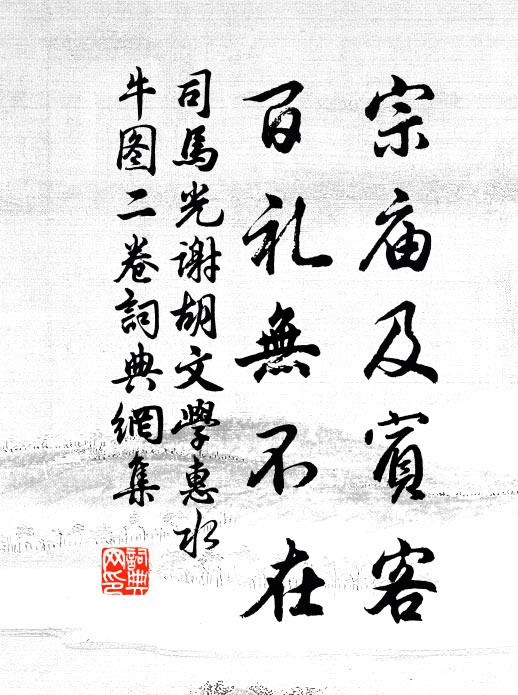 宗庙及賓客
百礼無不在
司馬光谢胡文學惠水
牛图二卷詞典網集
詞典网印